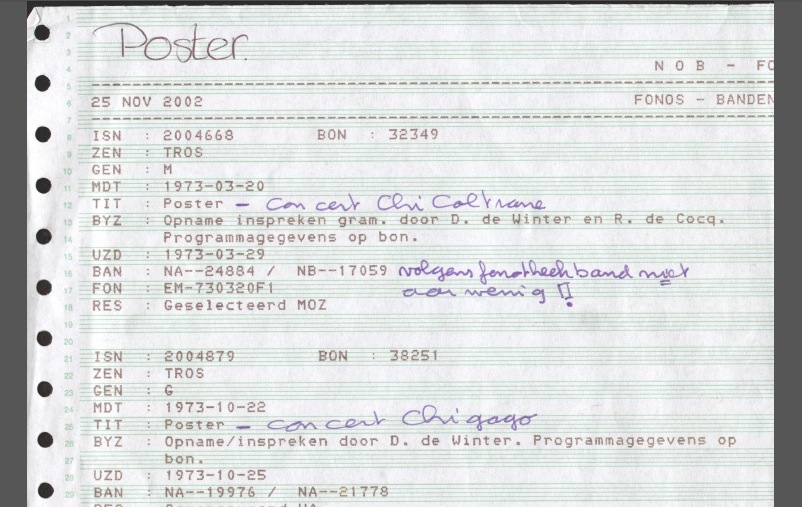 Poster.
N O B - FO
25 NOV 2002 FONOS - BANDEN
ISN : 2004668 BON : 32349
ZEN : TROS
GEN : M
MDT : 1973-03-20
TIT : Poster - Concert Chi Coltrane
BYZ : Opname inspreken gram. door D. de Winter en R. de Cocq.
Programmagegevens op bon.
UZD : 1973-03-29
BAN : NA--24884 / NB--17059 volgens fonotheek band niet
FON : EM-730320F1 aanwezig !
RES : Geselecteerd MOZ
ISN : 2004879 BON : 38251
ZEN : TROS
GEN : G
MDT : 1973-10-22
TIT : Poster - concert Chigago
BYZ : Opname/inspreken door D. de Winter. Programmagegevens op
bon.
UZD : 1973-10-25
BAN : NA--19976 / NA--21778